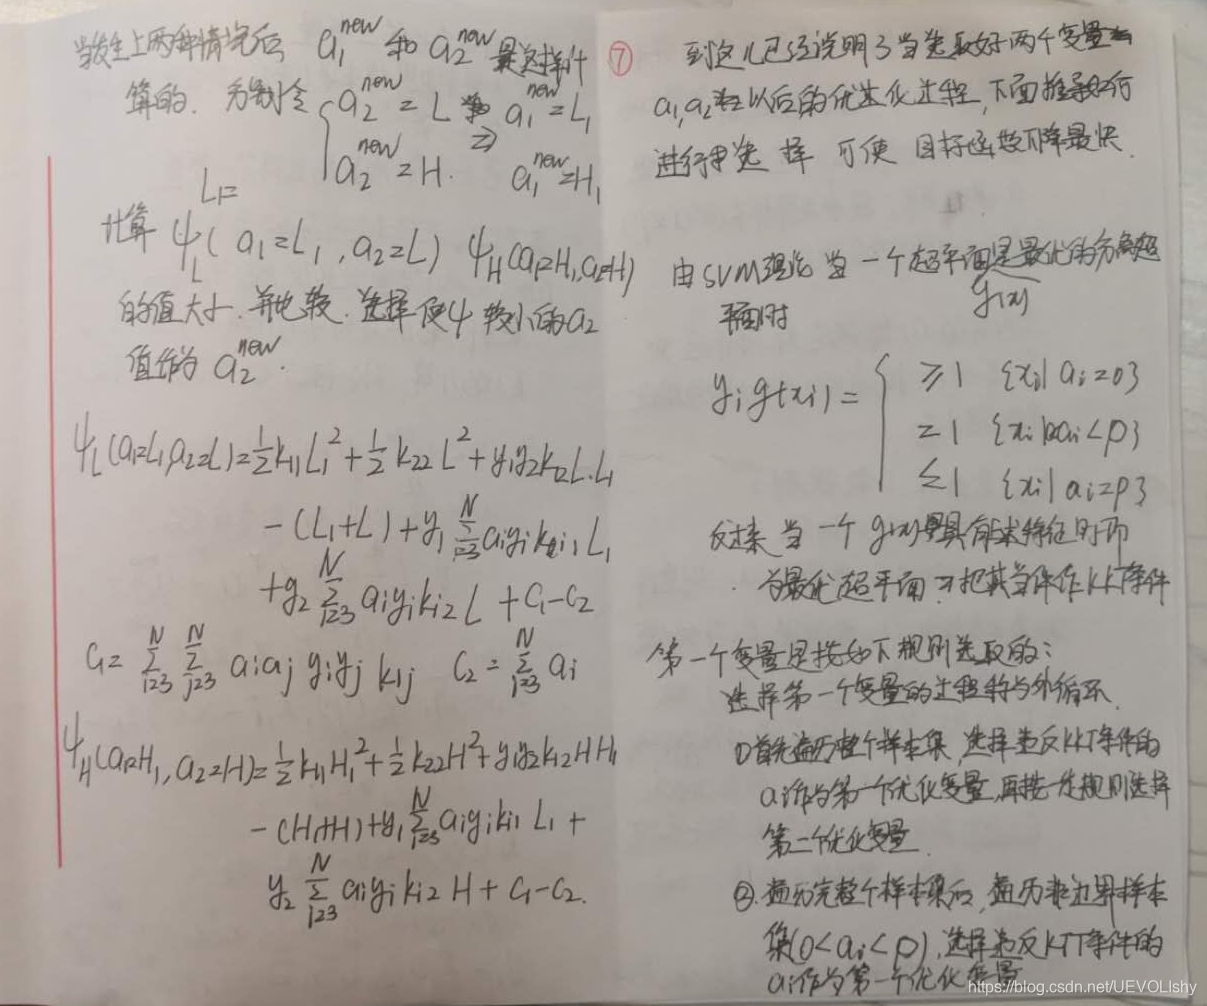 当发生上两种情况后 a₁ⁿᵉʷ 和 a₂ⁿᵉʷ 是这样计
算的. 分别令 { a₂ⁿᵉʷ = L ⇒ a₁ⁿᵉʷ = L₁
a₂ⁿᵉʷ = H. a₁ⁿᵉʷ = H₁
L₁=
计算 ψ_L( a₁=L₁ , a₂=L) ψ_H(a₁=H₁,a₂=H)
的值大小. 并比较. 选择使ψ较小的a₂
值作为 a₂ⁿᵉʷ.
ψ_L(a₁=L₁,a₂=L)=½k₁₁L₁²+½k₂₂L²+y₁y₂k₁₂L.L₁
-(L₁+L)+y₁ Σ_{i=3}^N aᵢyᵢkᵢ₁ L₁
+y₂ Σ_{i=3}^N aᵢyᵢkᵢ₂ L + C₁-C₂
C₁= Σ_{i=3}^N Σ_{j=3}^N aᵢaⱼ yᵢyⱼ kᵢⱼ C₂ = Σ_{i=3}^N aᵢ
ψ_H(a₁=H₁, a₂=H)=½k₁₁H₁²+½k₂₂H²+y₁y₂k₁₂HH₁
-(H₁+H)+y₁ Σ_{i=3}^N aᵢyᵢkᵢ₁ L₁ +
y₂ Σ_{i=3}^N aᵢyᵢkᵢ₂ H + C₁-C₂.
⑦ 到这儿已经说明了当选取好两个变量
a₁,a₂ 以后的优化过程, 下面推导如何
进行选择 可使 目标函数下降最快.
由SVM理论 当 一个超平面是最优的分离超
g(x)
平面时
yᵢg(xᵢ) = { ≥1 {xᵢ| aᵢ=0}
=1 {xᵢ|0<aᵢ<ρ}
≤1 {xᵢ| aᵢ=ρ}
反过来 当 一个 g(x) 具有 特征时 即
为最优超平面 可把其当作 KKT条件
第一个变量是按如下规则选取的:
选择第一个变量的过程称为外循环.
①首先遍历整个样本集, 选择违反KKT条件的
aᵢ作为第一个优化变量, 再按一定规则选择
第二个优化变量.
②. 遍历完整个样本集后, 遍历非边界样本
集(0<aᵢ<ρ), 选择违反KTT条件的
aᵢ作为第一个优化变量
https://blog.csdn.net/UEVOLIshy